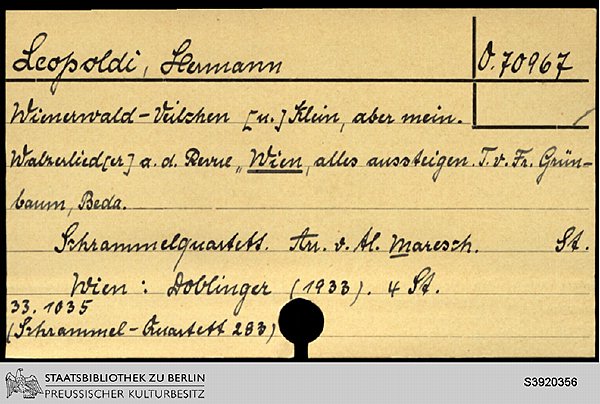 Leopoldi, Hermann
O. 70967
Wienerwald-Veilchen [u.] Klein, aber mein.
Walzerlied[er] a. d. Revue „Wien, alles aussteigen. T. v. Fr. Grün-
baum, Beda.
Schrammelquartett. Arr. v. Al. Maresch. St.
Wien: Doblinger (1933). 4 St.
33.1035
(Schrammel-Quartett 283)
STAATSBIBLIOTHEK ZU BERLIN
PREUSSISCHER KULTURBESITZ
S3920356